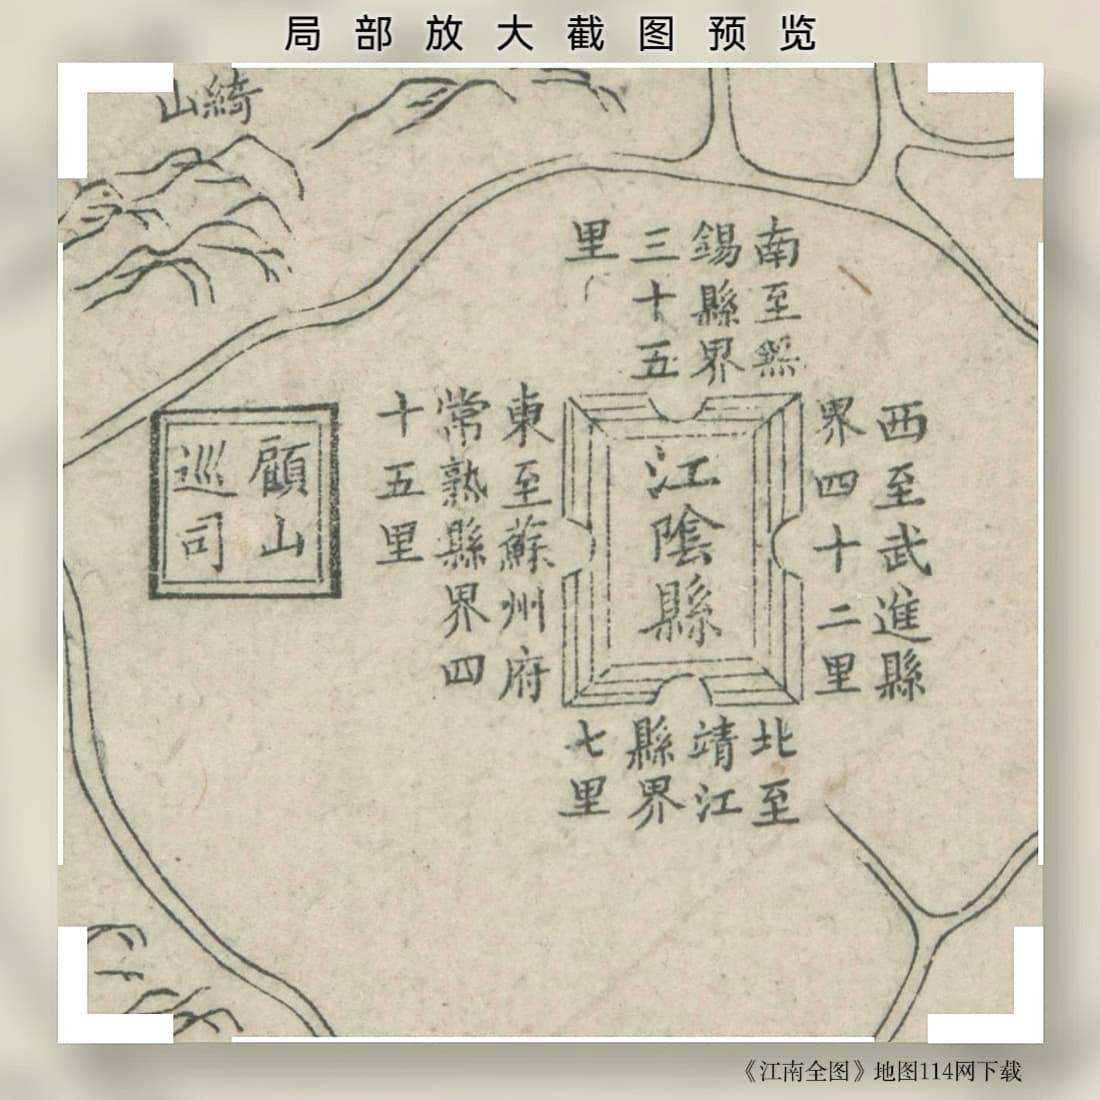 局部放大截图预览
綺山
南至無
錫縣界
三十五
里
西至武進縣
界四十二里
江陰縣
東至蘇州府
常熟縣界四
十五里
顧山
巡司
北至
靖江
縣界
七里
《江南全图》地图114网下载